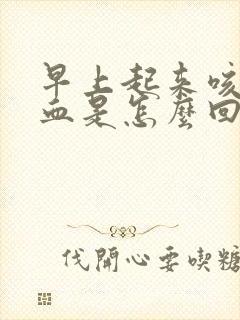 早上起来咳
血是怎麼回
伐開心要喫糖